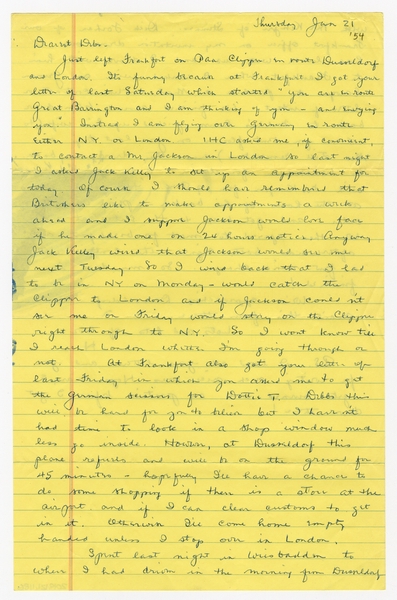 Thursday Jan 21
'54
Dearest Debs -
Just left Frankfort on Paa Clipper en route Dusseldorf
and London. Its funny because at Frankfort I got your
letter of last Saturday which started "you are en route
Great Barrington and I am thinking of you - and envying
you" Instead I am flying over Germany en route
either N.Y. or London. IHC asked me if convenient,
to contact a Mr. Jackson in London so last night
I asked Jack Kelley to set up an appointment for
today. Of course I should have remembered that
Britishers like to make appointments a week
ahead and I suppose Jackson would lose face
if he made one on 24 hours notice. Anyway
Jack Kelley wired that Jackson would see me
next Tuesday. So I wired back that I had
to be in NY on Monday - would catch the
Clipper to London and if Jackson couldn't
see me on Friday would stay on the Clipper
right through to N.Y. So I wont know till
I reach London whether I'm going through or
not. At Frankfort also got your letter of
last Friday in which you asked me to get
the German scissors for Dottie T. Debbs this
will be hard for you to believe but I haven't
had time to look in a shop window much
less go inside. However, at Dusseldorf this
plane refuels and will be on the ground for
45 minutes - hopefully I'll have a chance to
do some shopping if there is a store at the
airport and if I can clear customs to get
in it. Otherwise I'll come home empty
handed unless I stop over in London.
Spent last night in Wiesbaden to
where I had driven in the morning from Dusseldorf